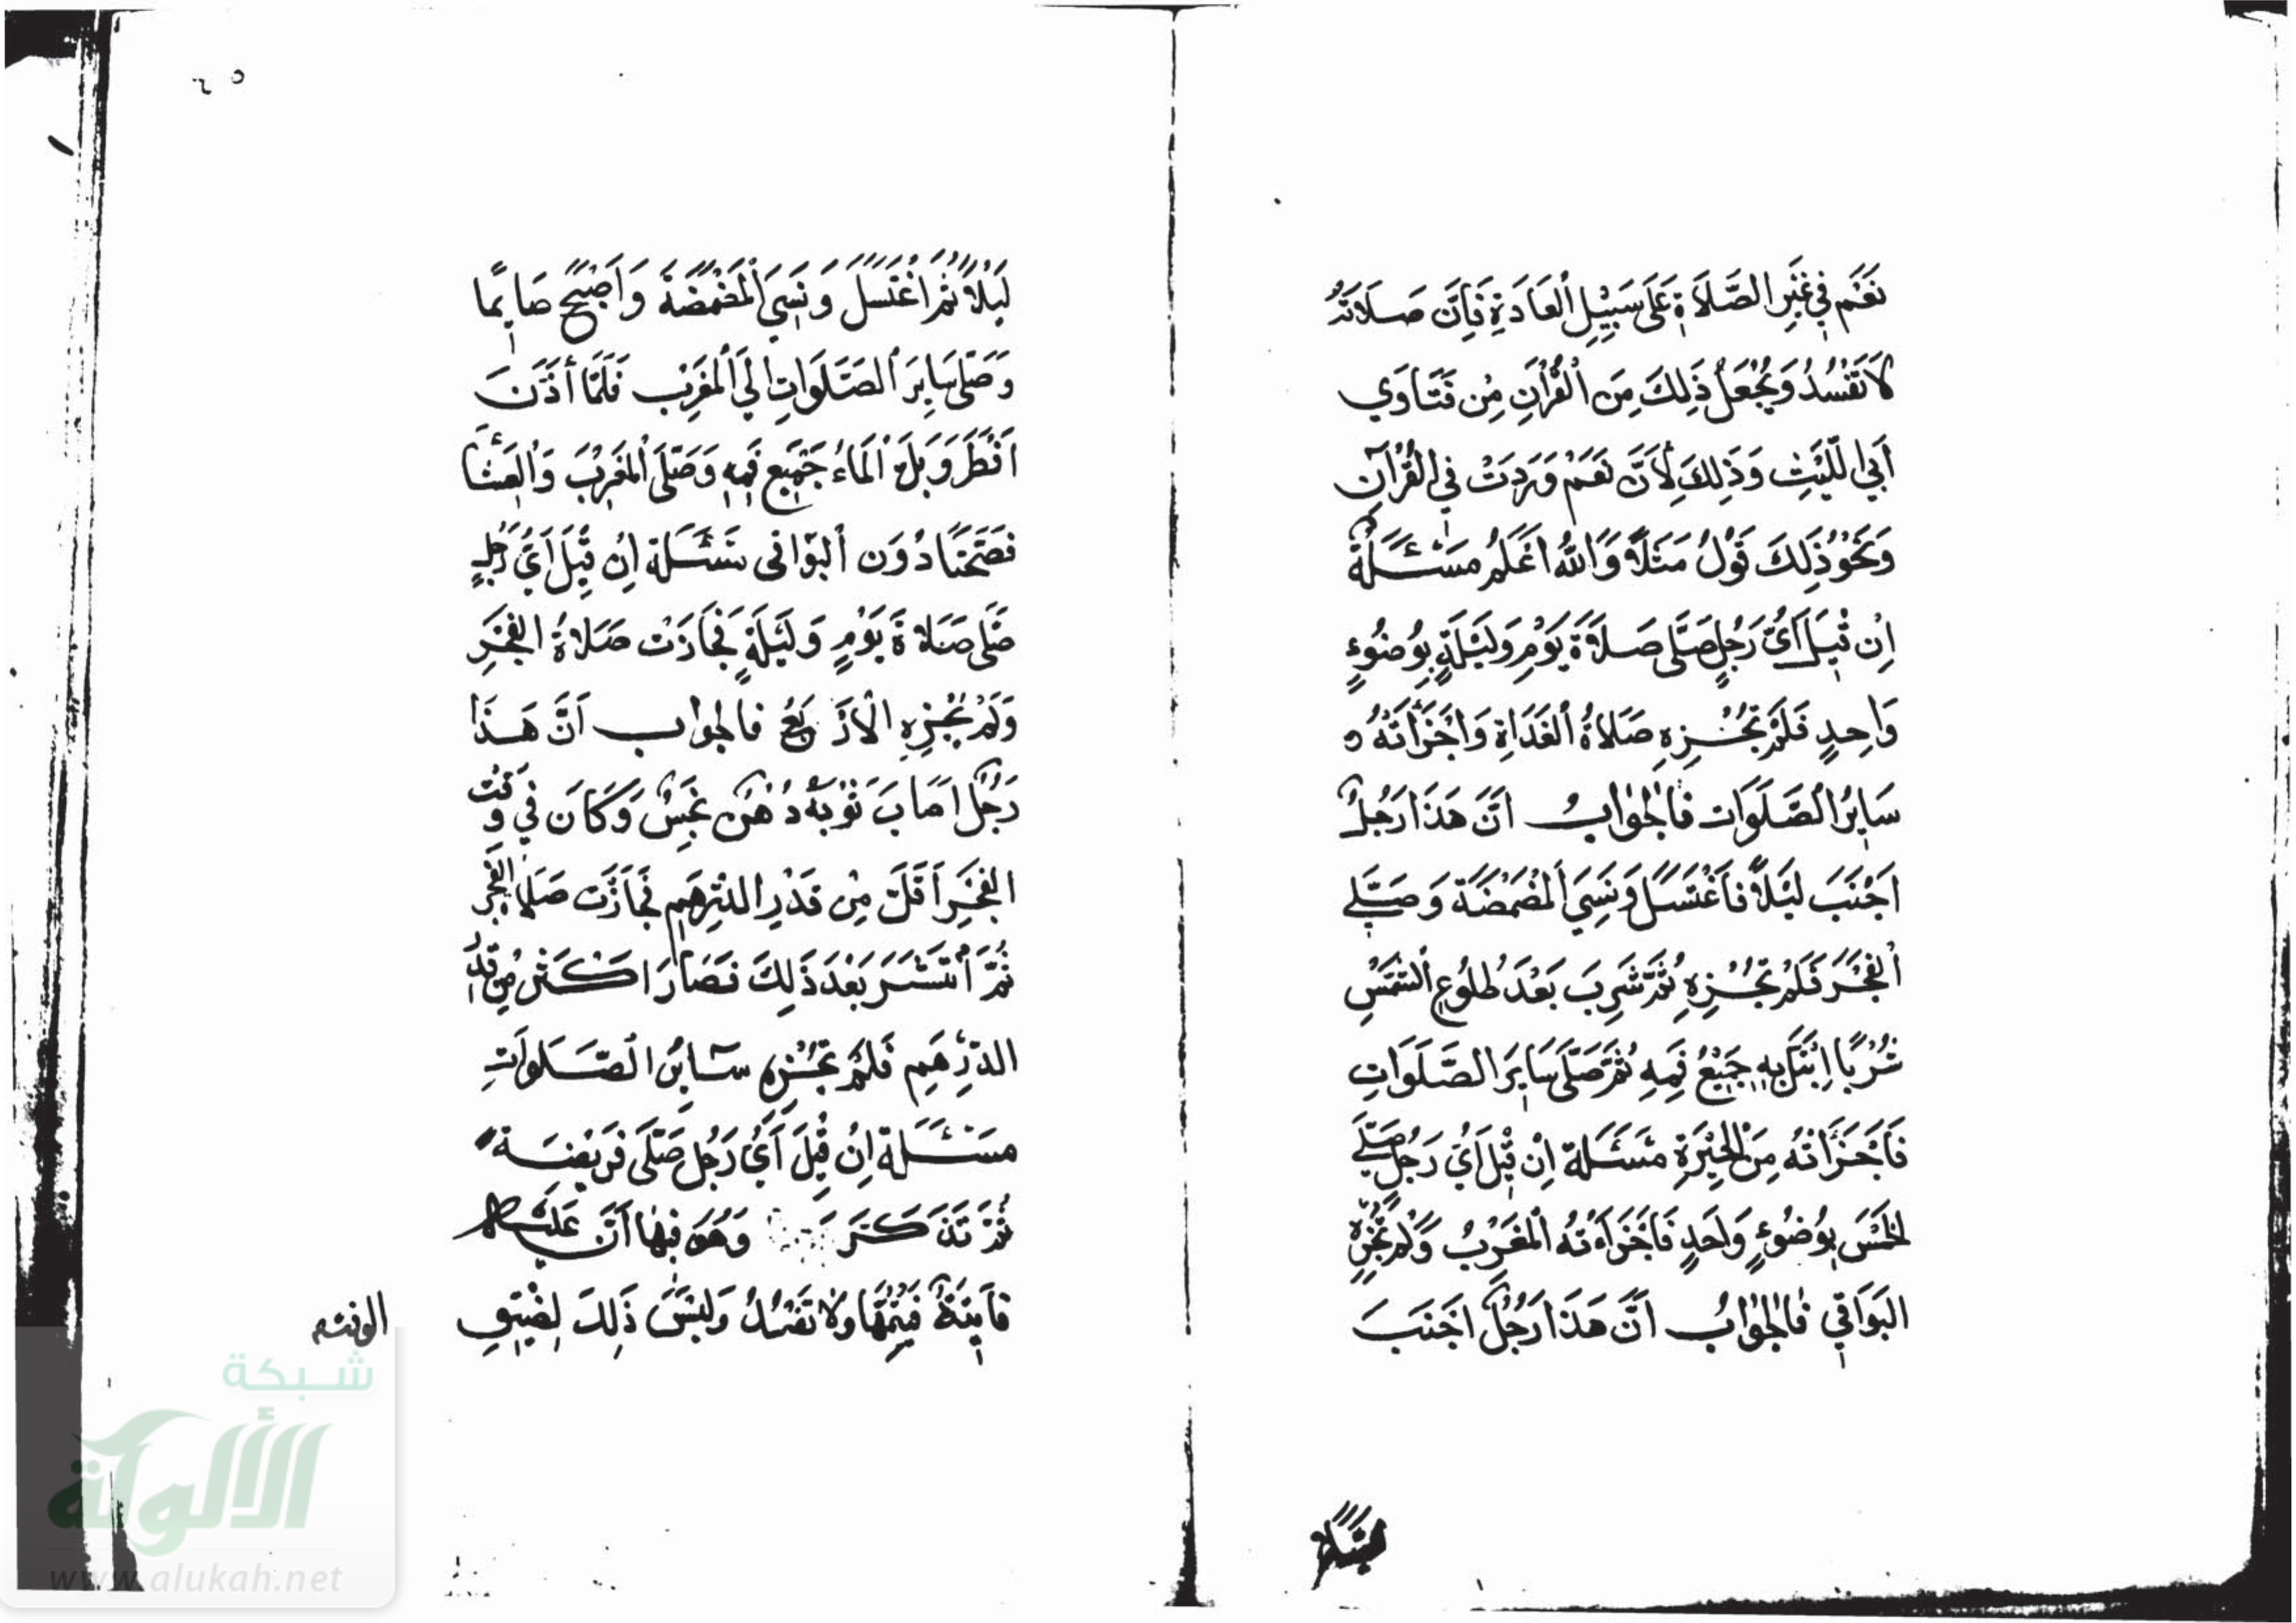 نَعَم في غَيرِ الصَّلَاةِ عَلَى سَبِيْلِ العَادَةِ فَإِنَّ صَلَاتَهُ
لَا تَفْسُدُ وَيُجْعَلُ ذَلِكَ مِنَ الْقُرْآنِ مِنْ فَتَاوَي
أَبي اللَّيْثِ وَذَلِكَ لِأَنَّ نَعَمْ وَرَدَتْ في القُرْآنِ
وَنَحْوُ ذَلِكَ قَوْلُ مَثَلًا وَاللهُ أَعْلَمُ مَسْئَلَةٌ
اِنْ قِيْلَ أَيُّ رَجُلٍ صَلَّى صَلَاةَ يَوْمٍ وَلَيْلَةٍ بِوُضُوءٍ
وَاحِدٍ فَلَمْ تُجْزِهِ صَلَاةُ الغَدَاةِ وَاَجْزَأَتْهُ
سَايِرُ الصَّلَوَات فَالجَوَابُ اَنَّ هَذَا رَجُلٌ
اَجْنَبَ لَيْلًا فَاغْتَسَلَ وَنَسِيَ المَضْمَضَةَ وَصَلَّي
الفَجْرَ فَلَمْ تُجْزِهِ ثُمَّ شَرِبَ بَعْدَ طُلُوعِ الشَّمْسِ
شُرْبًا اِبْتَلَّ بِهِ جَمِيْعُ فَمِهِ ثُمَّ صَلَّى سَايِرَ الصَّلَوَاتِ
فَأَجْزَأَتْهُ مِنَ الحِيْرَةِ مَسْئَلَة اِنْ قِيْلَ أَيُّ رَجُلٍ صَلَّي
الخَمْسَ بِوُضُوءٍ وَاحِدٍ فَأَجْزَأَتْهُ المَغْرِبُ وَلَمْ تُجْزِهِ
البَوَاقِي فَالجَوَابُ اَنَّ هَذَا رَجُلٌ اَجْنَبَ
لَيْلًا ثُمَّ اغْتَسَلَ وَنَسِيَ الْمَضْمَضَةَ وَأَصْبَحَ صَايِمًا
وَصَلَّى سَايِرَ الصَّلَوَاتِ إِلَي المَغْرِبِ فَلَمَّا أَذَّنَ
اَفْطَرَ وَبَلَّ الْمَاءُ جَمِيْعَ فَمِهِ وَصَلَّى الْمَغْرِبَ وَالعِشَا
فَصَحَّتَا دُوْنَ البَوَاقي مَسْئَلَة اِنْ قِيْلَ اَيُّ رَجُلٍ
صَلَّى صَلَاةَ يَوْمٍ وَلَيْلَةٍ فَجَازَتْ صَلَاةُ الفَجْرِ
وَلَمْ تُجْزِهِ الْأَرْبَعُ فالجَوَاب اَنَّ هَذَا
رَجُلٌ اَصَابَ ثَوْبَهُ دُهْنٌ نَجِسٌ وَكَانَ في وَقْتِ
الفَجْرِ اَقَلَّ مِنْ قَدْرِ الدِّرْهَمِ فَجَازَت صَلَاةُ الفَجْرِ
ثُمَّ اُنْتَشَرَ بَعْدَ ذَلِكَ فَصَارَ اَكْثَرَ مِنْ قَدْرِ
الدِّرْهَمِ فَلَمْ تُجْزِهِ سَايِرُ الصَّلَوَاتِ
مَسْئَلَة اِنْ قِيْلَ اَيُّ رَجُلٍ صَلَّى فَرِيْضَةً
ثُمَّ تَذَكَّرَ وَهُوَ فِيْهَا اَنَّ عَلَيْهِ
فَايِتَةٌ فَيُتِمُّهَا وَلَا تَفْسُدُ وَلَيْسَ ذَلِكَ لِضِيْقِ
الوقت
شبكة
الألوكة
www.alukah.net